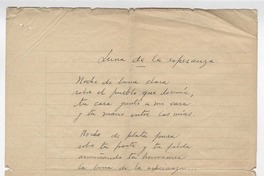 Luna de la esperanza
Noche de luna clara
sobre el pueblo que dormía,
tu casa junto a mi casa
y tu mano entre las mías.
Noche de plata pura
tu y tu
anunciando tu hermosura
la luna de la esperanza